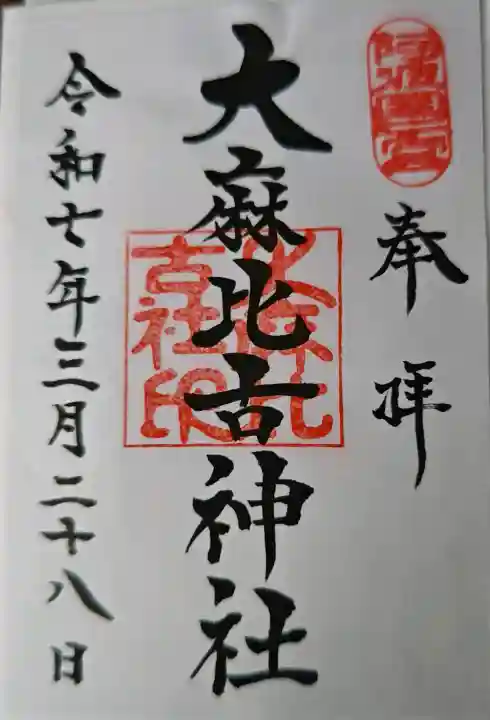 奉拝
大麻比古神社
大麻比古社印
令和七年三月二十八日